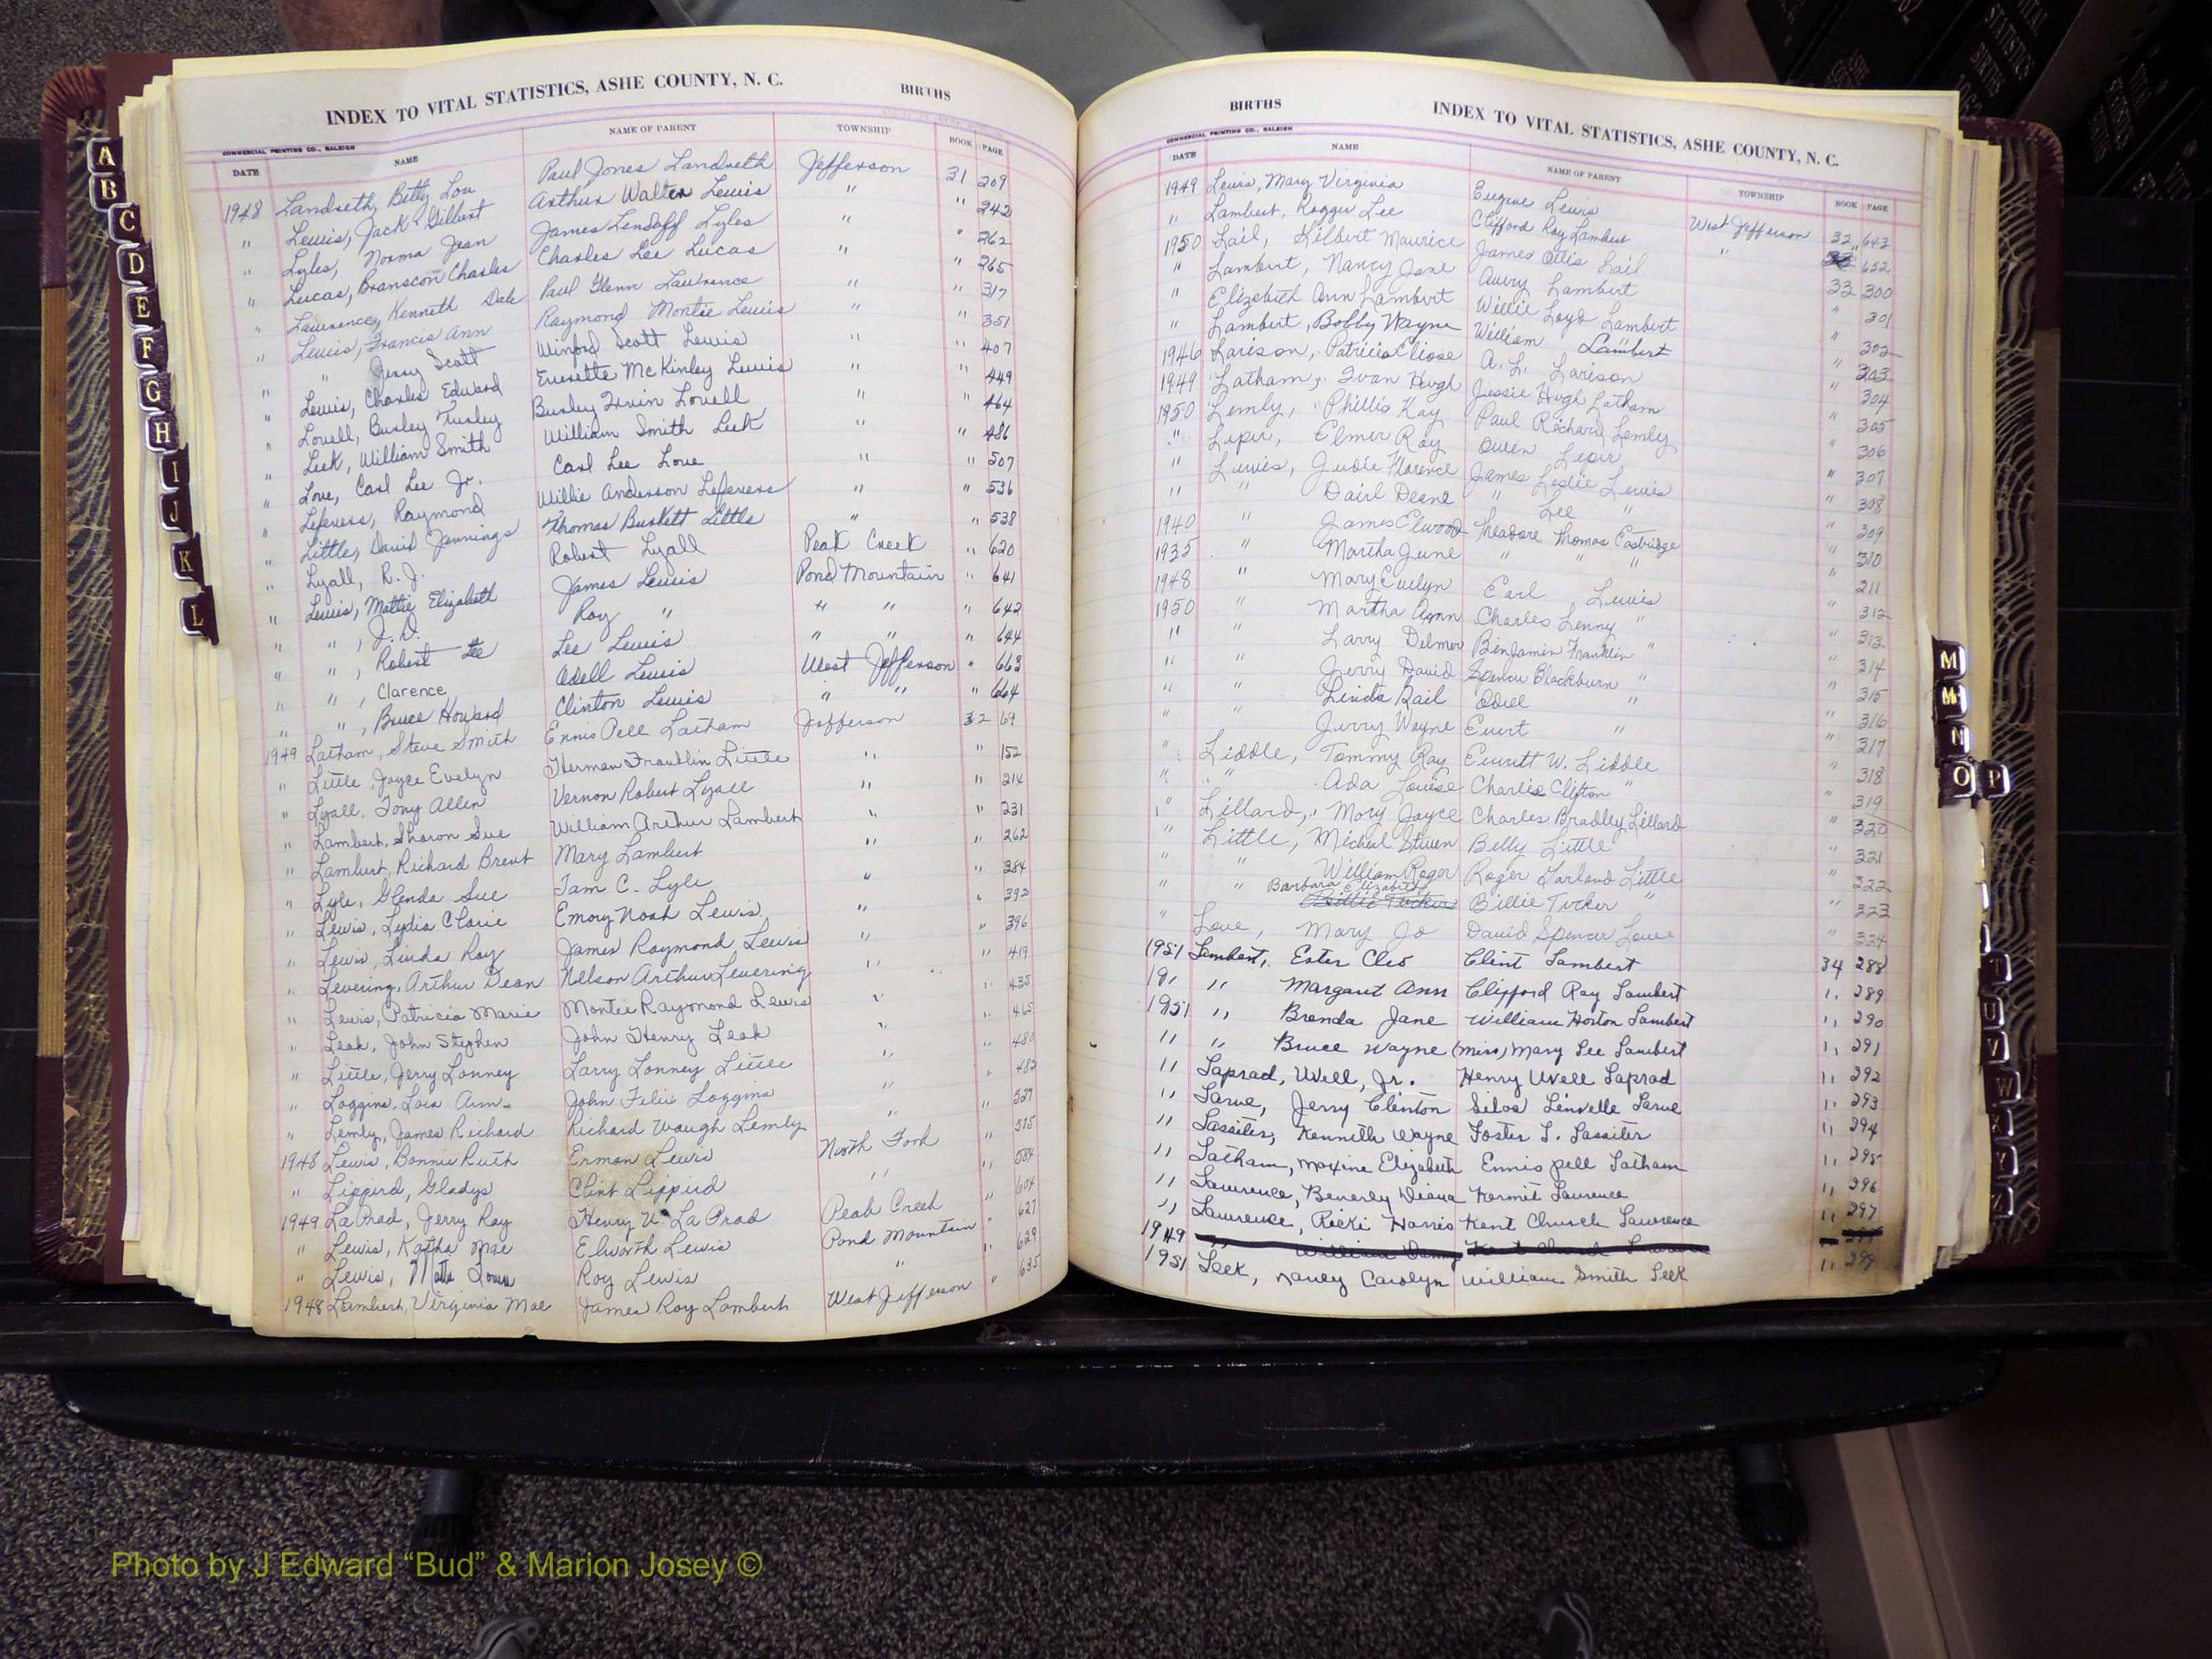 INDEX TO VITAL STATISTICS, ASHE COUNTY, N. C. BIRTHS
COMMERCIAL PRINTING CO., RALEIGH
DATE NAME NAME OF PARENT TOWNSHIP BOOK PAGE
1948 Landreth, Betty Lou Paul Jones Landreth Jefferson 31 209
" Lewis, Jack Gilbert Arthur Walter Lewis " " 242
" Lyles, Norma Jean James Lendoff Lyles " " 262
" Lucas, Branscon Charles Charles Lee Lucas " " 265
" Lawrence, Kenneth Dale Paul Glenn Lawrence " " 317
" Lewis, Francis Ann Raymond Montie Lewis " " 351
" Jerry Scott Winford Scott Lewis " " 407
" Lewis, Charles Edward Everette McKinley Lewis " " 449
" Lovell, Burley Tursley Burley Irvin Lovell " " 464
" Leek, William Smith William Smith Leek " " 486
" Love, Carl Lee Jr. Carl Lee Love " " 507
" Lefevers, Raymond Willie Anderson Lefevers " " 536
" Little, David Jennings Thomas Burkett Little " " 538
" Lyall, R. J. Robert Lyall Peak Creek " 620
" Lewis, Mattie Elizabeth James Lewis Pond Mountain " 641
" " , J. D. Roy " " " " 642
" " , Robert Lee Lee Lewis " " " 644
" " , Clarence Odell Lewis West Jefferson " 663
" " , Bruce Howard Clinton Lewis " " " 664
1949 Latham, Steve Smith Ennis Pell Latham Jefferson 32 64
" Little, Joyce Evelyn Herman Franklin Little " " 152
" Lyall, Tony Allen Vernon Robert Lyall " " 214
" Lambert, Sharon Sue William Arthur Lambert " " 231
" Lambert, Richard Brent Mary Lambert " " 262
" Lyle, Glenda Sue Tam C. Lyle " " 384
" Lewis, Lydia Clarie Emory Noah Lewis " " 392
" Lewis, Linda Ray James Raymond Lewis " " 396
" Levering, Arthur Dean Nelson Arthur Levering " " 419
" Lewis, Patricia Marie Montie Raymond Lewis " " 435
" Leak, John Stephen John Henry Leak " " 465
" Little, Jerry Lonney Larry Lonney Little " " 480
" Loggins, Lois Ann John Felix Loggins " " 482
" Lemly, James Richard Richard Waugh Lemly " " 527
1948 Lewis, Bonnie Ruth Erman Lewis North Fork " 575
" Lippird, Gladys Clint Lippird " " 584
1949 LaPrad, Jerry Ray Henry U. LaPrad Peak Creek " 604
" Lewis, Katha Mae Elworth Lewis Pond Mountain " 627
" Lewis, Roy Lewis " " 629
1948 Lambert, Virginia Mae James Roy Lambert West Jefferson " 635
BIRTHS INDEX TO VITAL STATISTICS, ASHE COUNTY, N. C.
COMMERCIAL PRINTING CO., RALEIGH
DATE NAME NAME OF PARENT TOWNSHIP BOOK PAGE
1949 Lewis, Mary Virginia Eugene Lewis West Jefferson 32 643
" Lambert, Roggie Lee Clifford Ray Lambert " 652
1950 Lail, Gilbert Maurice James Ottis Lail 33 300
" Lambert, Nancy Jane Avery Lambert " 301
" Elizabeth Ann Lambert Willie Loyd Lambert " 302
" Lambert, Bobby Wayne William Lambert " 303
1946 Larison, Patricia Cliose A. L. Larison " 304
1949 Latham, Ivan Hugh Jessie Hugh Latham " 305
1950 Lemly, Phillis Kay Paul Richard Lemly " 306
" Leper, Elmer Ray Owen Leper " 307
" Lewis, Judie Florence James Leslie Lewis " 308
" " Dairl Deane " Lee " " 309
1940 " James Elwood Theadore Thomas Eastridge " 310
1935 " Martha June " " " " 211
1948 " Mary Evelyn Earl Lewis " 312
1950 " Martha Ann Charles Lenny " " 313
" " Larry Delmer Benjamin Franklin " " 314
" " Jerry David Spencer Blackburn " " 315
" " Linda Gail Odell " " 316
" " Jerry Wayne Evert " " 317
" Liddle, Tommy Ray Everett W. Liddle " 318
" " Ada Louise Charlie Clifton " " 319
" Lillard, Mary Joyce Charles Bradley Lillard " 320
" Little, Micheal Steven Billy Little " 321
" " William Roger Roger Garland Little " 322
" " Barbara Elizabeth Billie Tucker Billie Tucker " " 323
" Love, Mary Jo David Spencer Love " 324
1951 Lambert, Ester Cleo Clint Lambert 34 288
" " Margaret Ann Clifford Ray Lambert " 289
1951 " Brenda Jane William Horton Lambert " 290
" " Bruce Wayne (Miss) Mary Lee Lambert " 291
" Laprad, Uvell, Jr. Henry Uvell Laprad " 292
" Larue, Jerry Clinton Silva Linvelle Larue " 293
" Lassiter, Kenneth Wayne Foster L. Lassiter " 294
" Latham, Maxine Elizabeth Ennis Pell Latham " 295
" Lawrence, Beverly Diana Kermit Lawrence " 296
" Lawrence, Ricki Harris Kent Church Lawrence " 297
1949 " William Danny Kent Church Lawrence " 298
1951 Leek, Nancy Carolyn William Smith Leek " 299
A
B
C
D
E
F
G
H
I
J
K
L
M
Mc
N
O P
T
U
V
W
X
Y
Z
VITAL STATISTICS BIRTHS
Photo by J Edward “Bud” & Marion Josey ©